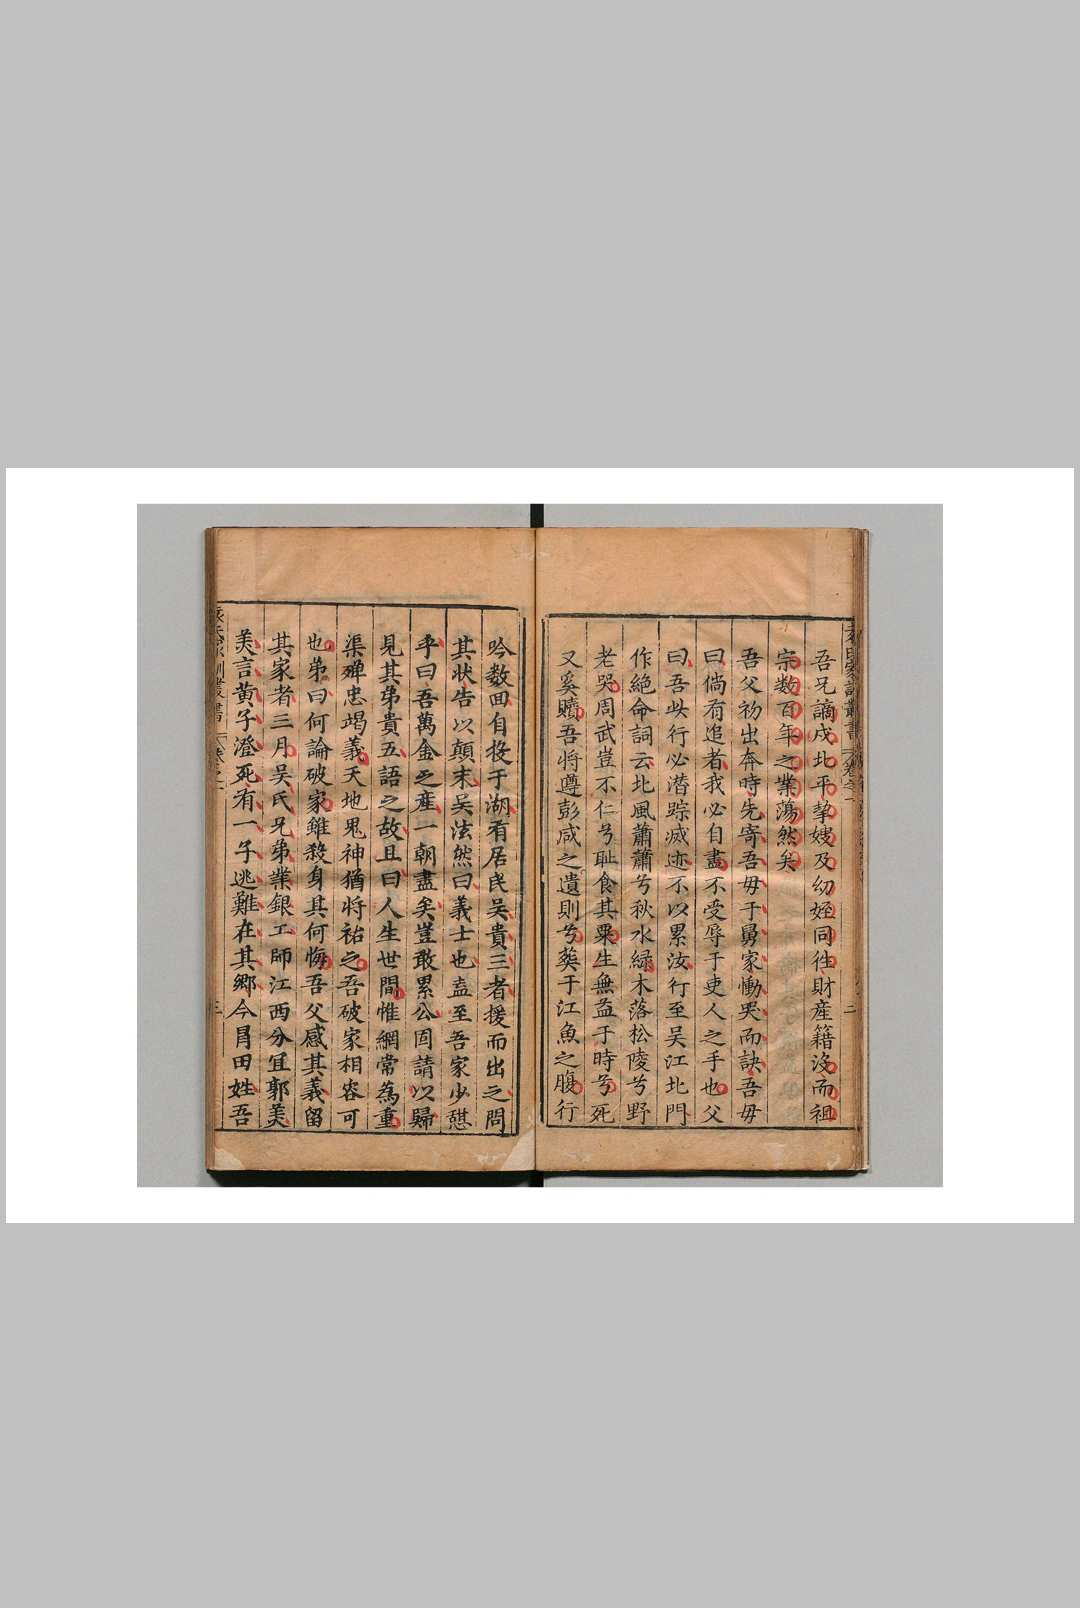 吾兄謫戍北平挈嫂及幼姪同徃財産籍沒而祖
宗數百年之業蕩然矣
吾父初出奔時先寄吾毋于舅家慟哭而訣吾毋
曰倘有追者我必自盡不受辱于吏人之手也父
曰吾此行必潛踪滅迹不以累汝行至吴江北門
作絶命詞云北風蕭蕭兮秋水緑木落松陵兮野
老哭周武豈不仁兮耻食其粟生無益于時兮死
又奚贖吾将遵彭咸之遺則兮葬于江魚之腹行
吟数回自投于湖有居民吴貴三者援而出之問
其状告以顛末吴法然曰義士也盍至吾家少憇
乎曰吾萬金之産一朝盡矣豈敢累公固請以歸
見其弟貴五語之故且曰人生世間惟綱常為重
渠殫忠竭義天地鬼神猶将祐之吾破家相容可
也弟曰何論破家雖殺身其何悔吾父感其義留
其家者三月吴氏兄弟業銀工師江西分宜郭美
美言黄子澄死有一子逃難在其鄉今冐田姓吾
袁氏家訓叢書 卷之一
三